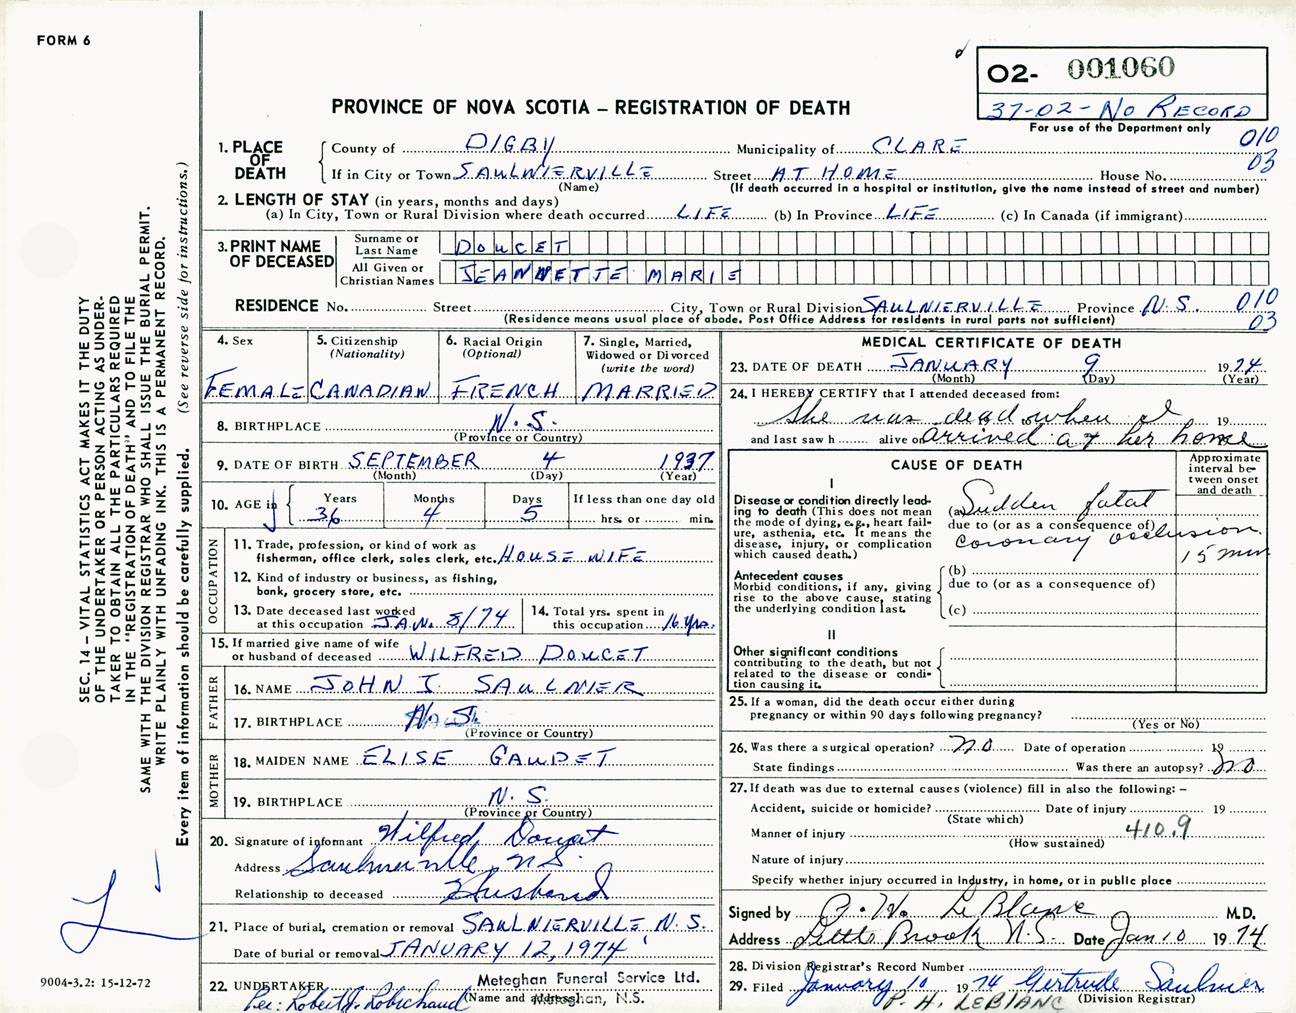 FORM 6
O2- 001060
37-02-NO RECORD
For use of the Department only
PROVINCE OF NOVA SCOTIA – REGISTRATION OF DEATH
010
03
1. PLACE OF DEATH
County of DIGBY Municipality of CLARE
If in City or Town SAULNIERVILLE Street AT HOME House No.
(Name) (If death occurred in a hospital or institution, give the name instead of street and number)
2. LENGTH OF STAY (in years, months and days)
(a) In City, Town or Rural Division where death occurred LIFE (b) In Province LIFE (c) In Canada (if immigrant)
3. PRINT NAME OF DECEASED
Surname or Last Name DOUCET
All Given or Christian Names JEANNETTE MARIE
RESIDENCE No. Street City, Town or Rural Division SAULNIERVILLE Province N.S. 010
03
(Residence means usual place of abode. Post Office Address for residents in rural parts not sufficient)
4. Sex
FEMALE
5. Citizenship
(Nationality)
CANADIAN
6. Racial Origin
(Optional)
FRENCH
7. Single, Married,
Widowed or Divorced
(write the word)
MARRIED
8. BIRTHPLACE N.S.
(Province or Country)
9. DATE OF BIRTH SEPTEMBER 4 1937
(Month) (Day) (Year)
10. AGE in
Years Months Days If less than one day old
36 4 5 hrs. or min.
OCCUPATION
11. Trade, profession, or kind of work as
fisherman, office clerk, sales clerk, etc. HOUSE WIFE
12. Kind of industry or business, as fishing,
bank, grocery store, etc.
13. Date deceased last worked
at this occupation JAN. 8/74
14. Total yrs. spent in
this occupation 16 yrs.
15. If married give name of wife
or husband of deceased WILFRED DOUCET
FATHER
16. NAME JOHN I. SAULNIER
17. BIRTHPLACE N.S.
(Province or Country)
MOTHER
18. MAIDEN NAME ELISE GAUDET
19. BIRTHPLACE N.S.
(Province or Country)
20. Signature of informant Wilfred Doucet
Address Saulnierville, N.S.
Relationship to deceased Husband
21. Place of burial, cremation or removal SAULNIERVILLE N.S.
Date of burial or removal JANUARY 12, 1974
22. UNDERTAKER Meteghan Funeral Service Ltd.
Per: Robert J. Robichaud (Name and address) Meteghan, N.S.
MEDICAL CERTIFICATE OF DEATH
23. DATE OF DEATH JANUARY 9 1974
(Month) (Day) (Year)
24. I HEREBY CERTIFY that I attended deceased from:
She was dead when I 19
and last saw h alive on arrived at her home
CAUSE OF DEATH
Approximate
interval be-
tween onset
and death
I
Disease or condition directly lead-
ing to death (This does not mean
the mode of dying, e.g., heart fail-
ure, asthenia, etc. It means the
disease, injury, or complication
which caused death.)
(a) Sudden fatal
due to (or as a consequence of)
coronary occlusion
15 min
Antecedent causes
Morbid conditions, if any, giving
rise to the above cause, stating
the underlying condition last.
(b)
due to (or as a consequence of)
(c)
II
Other significant conditions
contributing to the death, but not
related to the disease or condi-
tion causing it.
25. If a woman, did the death occur either during
pregnancy or within 90 days following pregnancy?
(Yes or No)
26. Was there a surgical operation? no Date of operation 19
State findings Was there an autopsy? no
27. If death was due to external causes (violence) fill in also the following: –
Accident, suicide or homicide? Date of injury 19
(State which)
Manner of injury 410.9
(How sustained)
Nature of injury
Specify whether injury occurred in Industry, in home, or in public place
Signed by P. H. LeBlanc M.D.
Address Little Brook N.S. Date Jan 10 1974
28. Division Registrar's Record Number
29. Filed January 10 1974 Gertrude Saulnier
P. H. LEBLANC (Division Registrar)
SEC. 14 – VITAL STATISTICS ACT MAKES IT THE DUTY
OF THE UNDERTAKER OR PERSON ACTING AS UNDER-
TAKER TO OBTAIN ALL THE PARTICULARS REQUIRED
IN THE "REGISTRATION OF DEATH" AND TO FILE THE
SAME WITH THE DIVISION REGISTRAR WHO SHALL ISSUE THE BURIAL PERMIT.
WRITE PLAINLY WITH UNFADING INK. THIS IS A PERMANENT RECORD.
Every item of information should be carefully supplied. (See reverse side for instructions.)
9004-3.2: 15-12-72